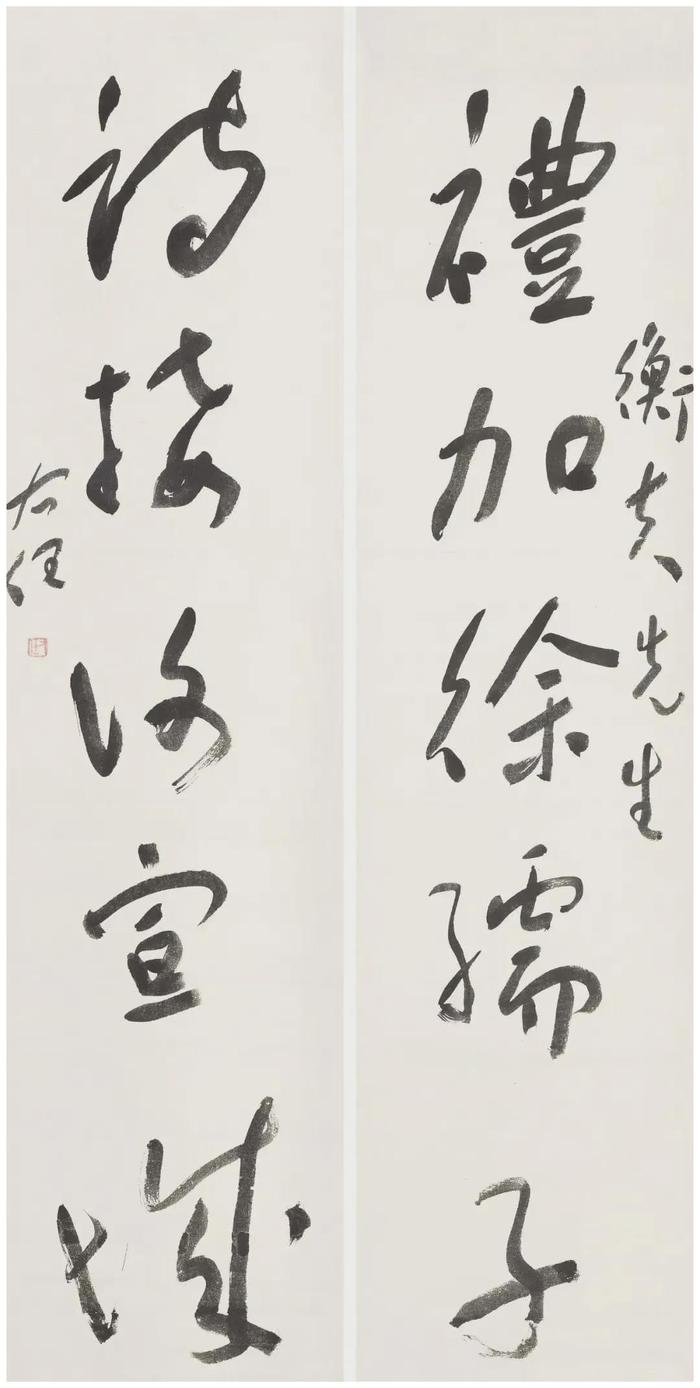 衡夫先生
禮加徐孺子
詩接謝宣城
右任